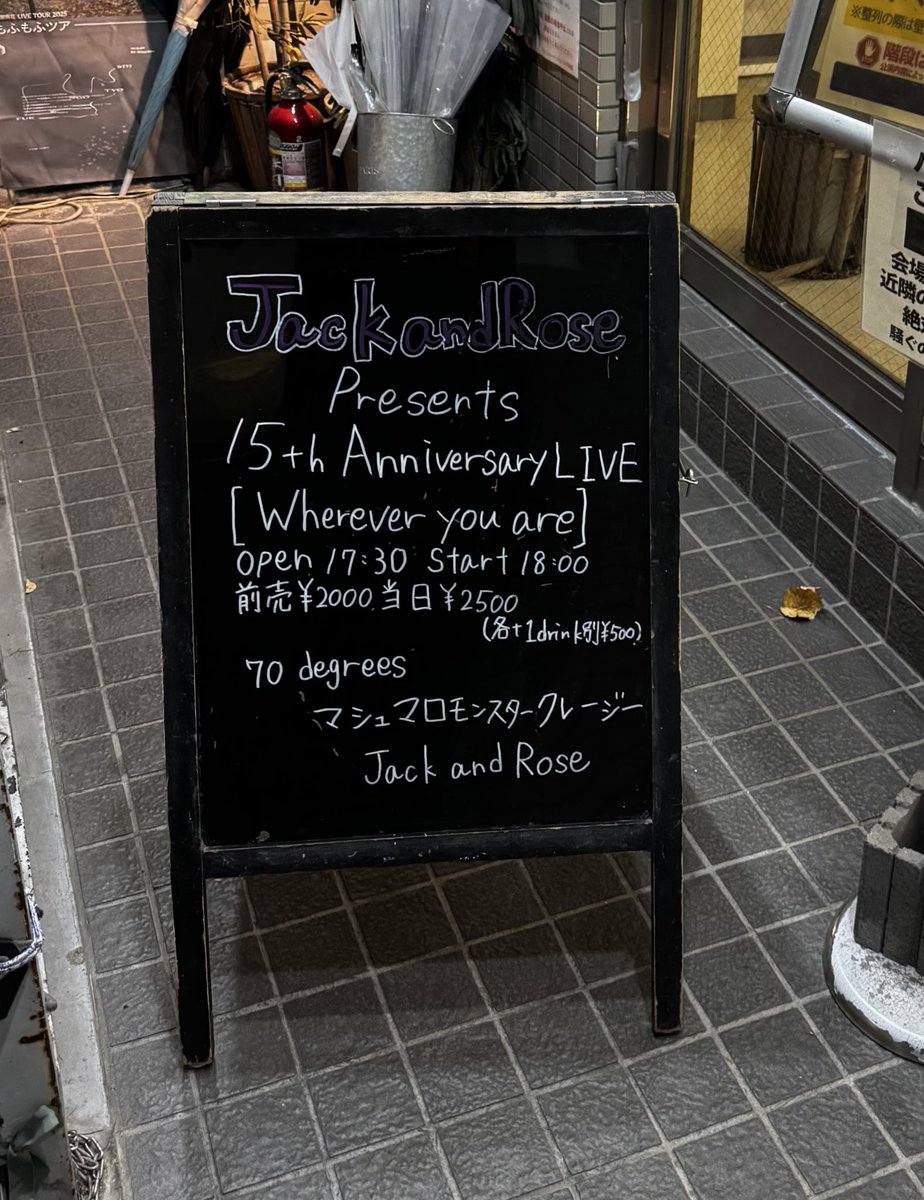 LIVE TOUR 2025
もふもふツア
※整列の際は
階段は
会場
近隣の
絶
騒ぐの
Jack and Rose
Presents
15th Anniversary LIVE
[Wherever you are]
open 17:30 Start 18:00
前売¥2000 当日¥2500
(各+1drink別¥500)
70 degrees
マシュマロモンスタークレージー
Jack and Rose